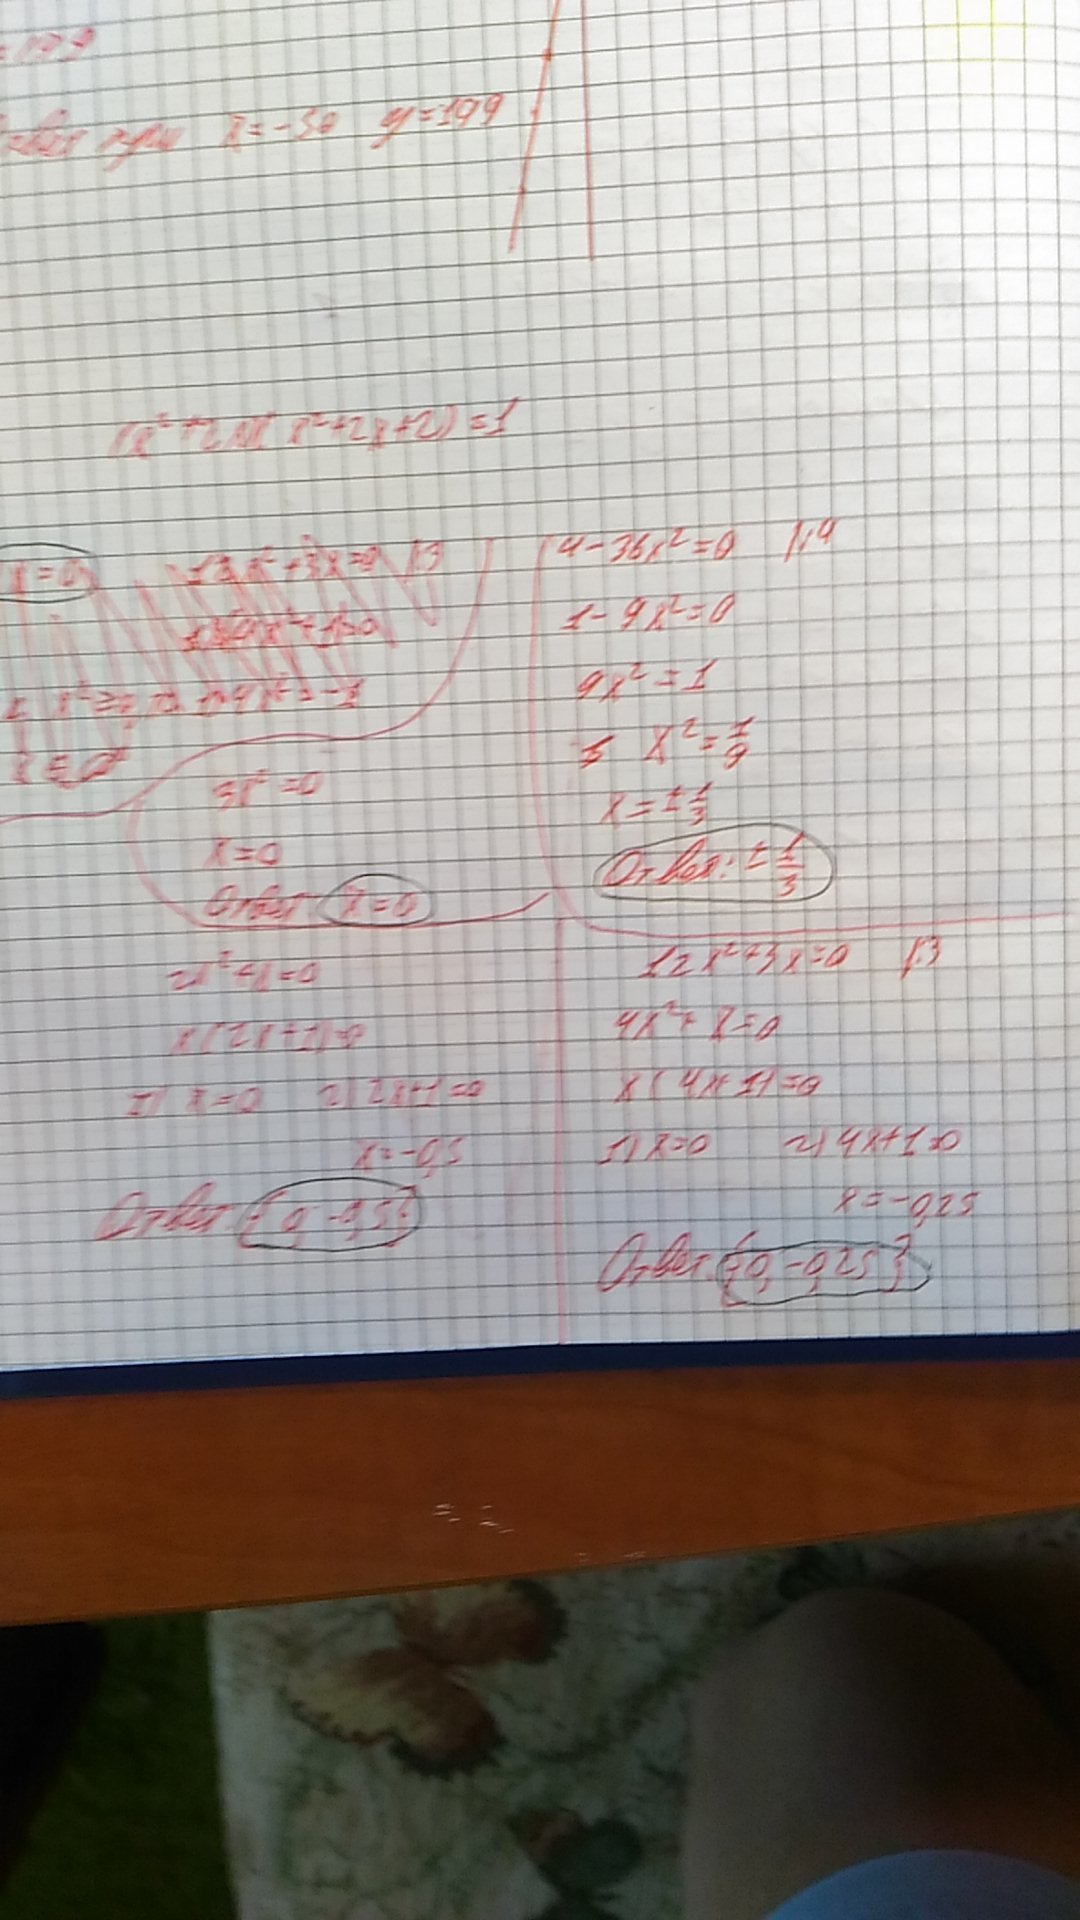 x=-50 y=199
(x²+2x)(x²+2x+2)=1
x=0
3x²=0
x=0
Ответ x=0
4-36x²=0 |:4
1-9x²=0
9x²=1
x²=1/9
x=±1/3
Ответ: ±1/3
2x²+x=0
x(2x+1)=0
1) x=0 2) 2x+1=0
x=-0,5
Ответ {0, -0,5}
12x²+3x=0 |:3
4x²+x=0
x(4x+1)=0
1) x=0 2) 4x+1=0
x=-0,25
Ответ {0, -0,25}